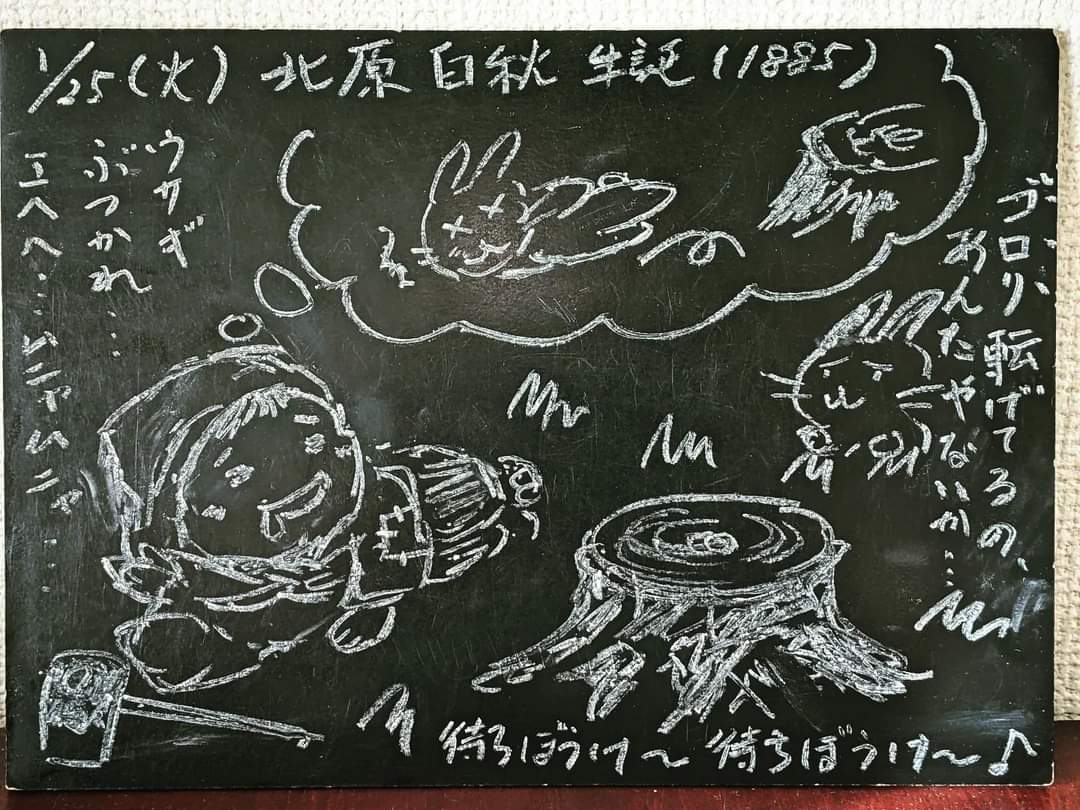 1/25(火) 北原 白秋 生誕(1885)
ゴロリ、転げてるの、
あんたやないか…
ウサギ
ぶつかれ…
エヘヘ…ムニャムニャ…
待ちぼうけ〜 待ちぼうけ〜♪